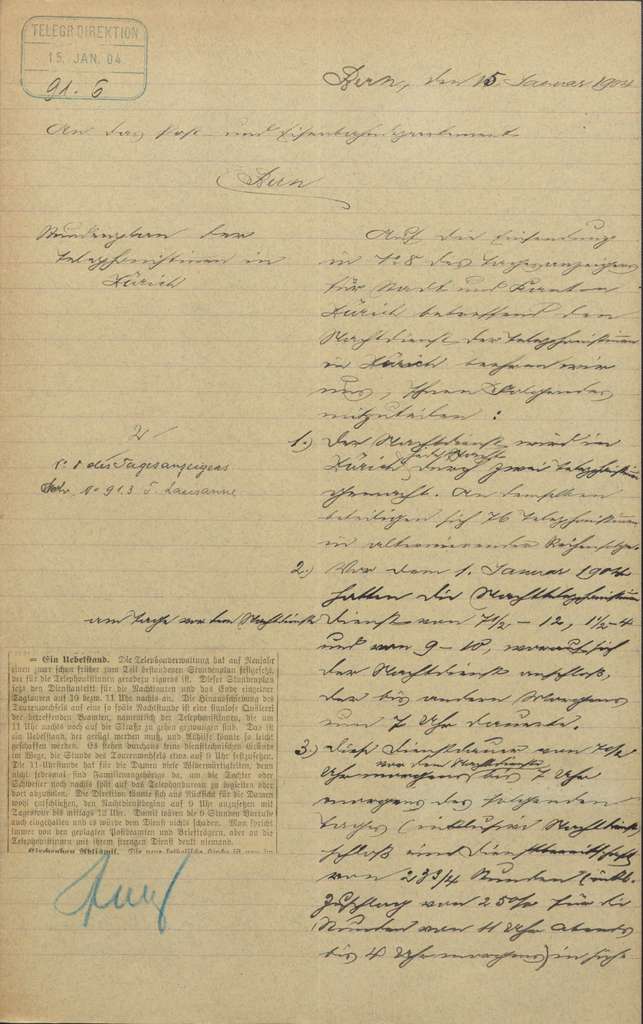 TELEGR. DIREKTION
15. JAN. 04
91. 6
Bern, den 15 Januar 1904
An das Post- und Eisenbahndepartement
Bern
Stundenplan der
Telephonistinnen in
Zürich
2
N. 8 des Tagesanzeigers
No 913 Lausanne
Auf die Einsendung
in No 8 des Tagesanzeigers
für Stadt und Kanton
Zürich betreffend den
Nachtdienst der Telephonistinnen
in Zürich beehren wir
uns, Ihnen Folgendes
mitzuteilen:
1.) Der Nachtdienst wird in
jede Nacht
Zürich durch zwei Telephonistinnen
gemacht. An demselben
beteiligen sich 76 Telephonistinnen
in alternierender Reihenfolge.
2.) Vor dem 1. Januar 1904
hatten die Nachttelephonistinnen
am Tage vor dem Nachtdienst Dienst von 7 1/2 - 12, 1 1/2 - 4
und von 9 - 10, worauf sich
der Nachtdienst anschloß,
der bis andern Morgens
um 7 Uhr dauerte.
3.) Diese Dienstdauer von 7 1/2
vor dem Nachtdienste
Uhr morgens bis 7 Uhr
morgens des folgenden
Tages (inklusive Nachtdienst
schloß eine Dienstbereitschaft
von 23 3/4 Stunden (inkl.
Zuschlag von 25% für die
Stunden von 11 Uhr abends
bis 4 Uhr morgens) in sich
= Ein Uebelstand. Die Telephonverwaltung hat auf Neujahr
einen zwar schon früher zum Teil bestandenen Stundenplan festgesetzt,
der für die Telephonistinnen geradezu rigoros ist. Dieser Stundenplan
setzt den Dienstantritt für die Nachttouren und das Ende einzelner
Tagtouren auf 10 bezw. 11 Uhr nachts an. Die Hinausschiebung des
Tourenwechsels auf eine so späte Nachtstunde ist eine sinnlose Quälerei
der betreffenden Beamten, namentlich der Telephonistinnen, die um
11 Uhr nachts noch auf der Straße zu gehen gezwungen sind. Das ist
ein Uebelstand, der gerügt werden muß, und Abhilfe könnte so leicht
geschaffen werden. Es stehen durchaus keine diensttechnischen Gebote
im Wege, die Stunde des Tourenwechsels etwa auf 9 Uhr festzusetzen.
Die 11-Uhrstunde hat für die Damen viele Widerwärtigkeiten, denn
nicht jedesmal sind Familienangehörige da, um die Tochter oder
Schwester noch nachts spät auf das Telephonbureau zu begleiten oder
dort abzuholen. Die Direktion könnte sich aus Rücksicht für die Damen
wohl entschließen, den Nachtdienstbeginn auf 9 Uhr anzusetzen mit
Tagestour bis mittags 12 Uhr. Damit wären die 8 Stunden Vorruhe
auch eingehalten und es würde dem Dienst nichts schaden. Man spricht
immer von den geplagten Postbeamten und Briefträgern, aber an die
Telephonistinnen mit ihrem strengen Dienst denkt niemand.